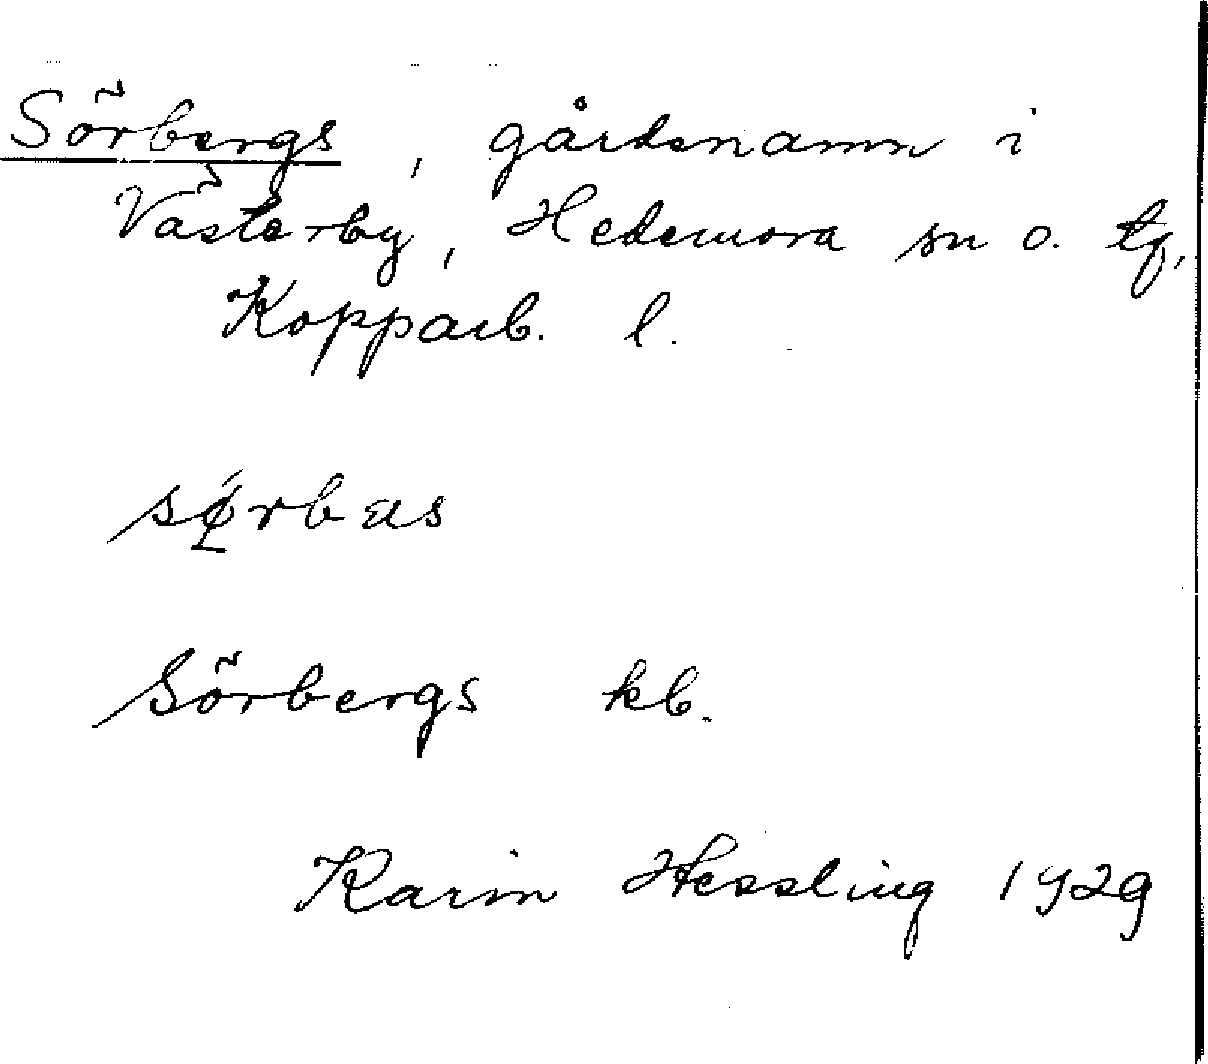 Sörbergs, gårdsnamn i
Västerby, Hedemora sn o. tg,
Kopparb. l.
Sörbergs kb.
Karin Hessling 1929